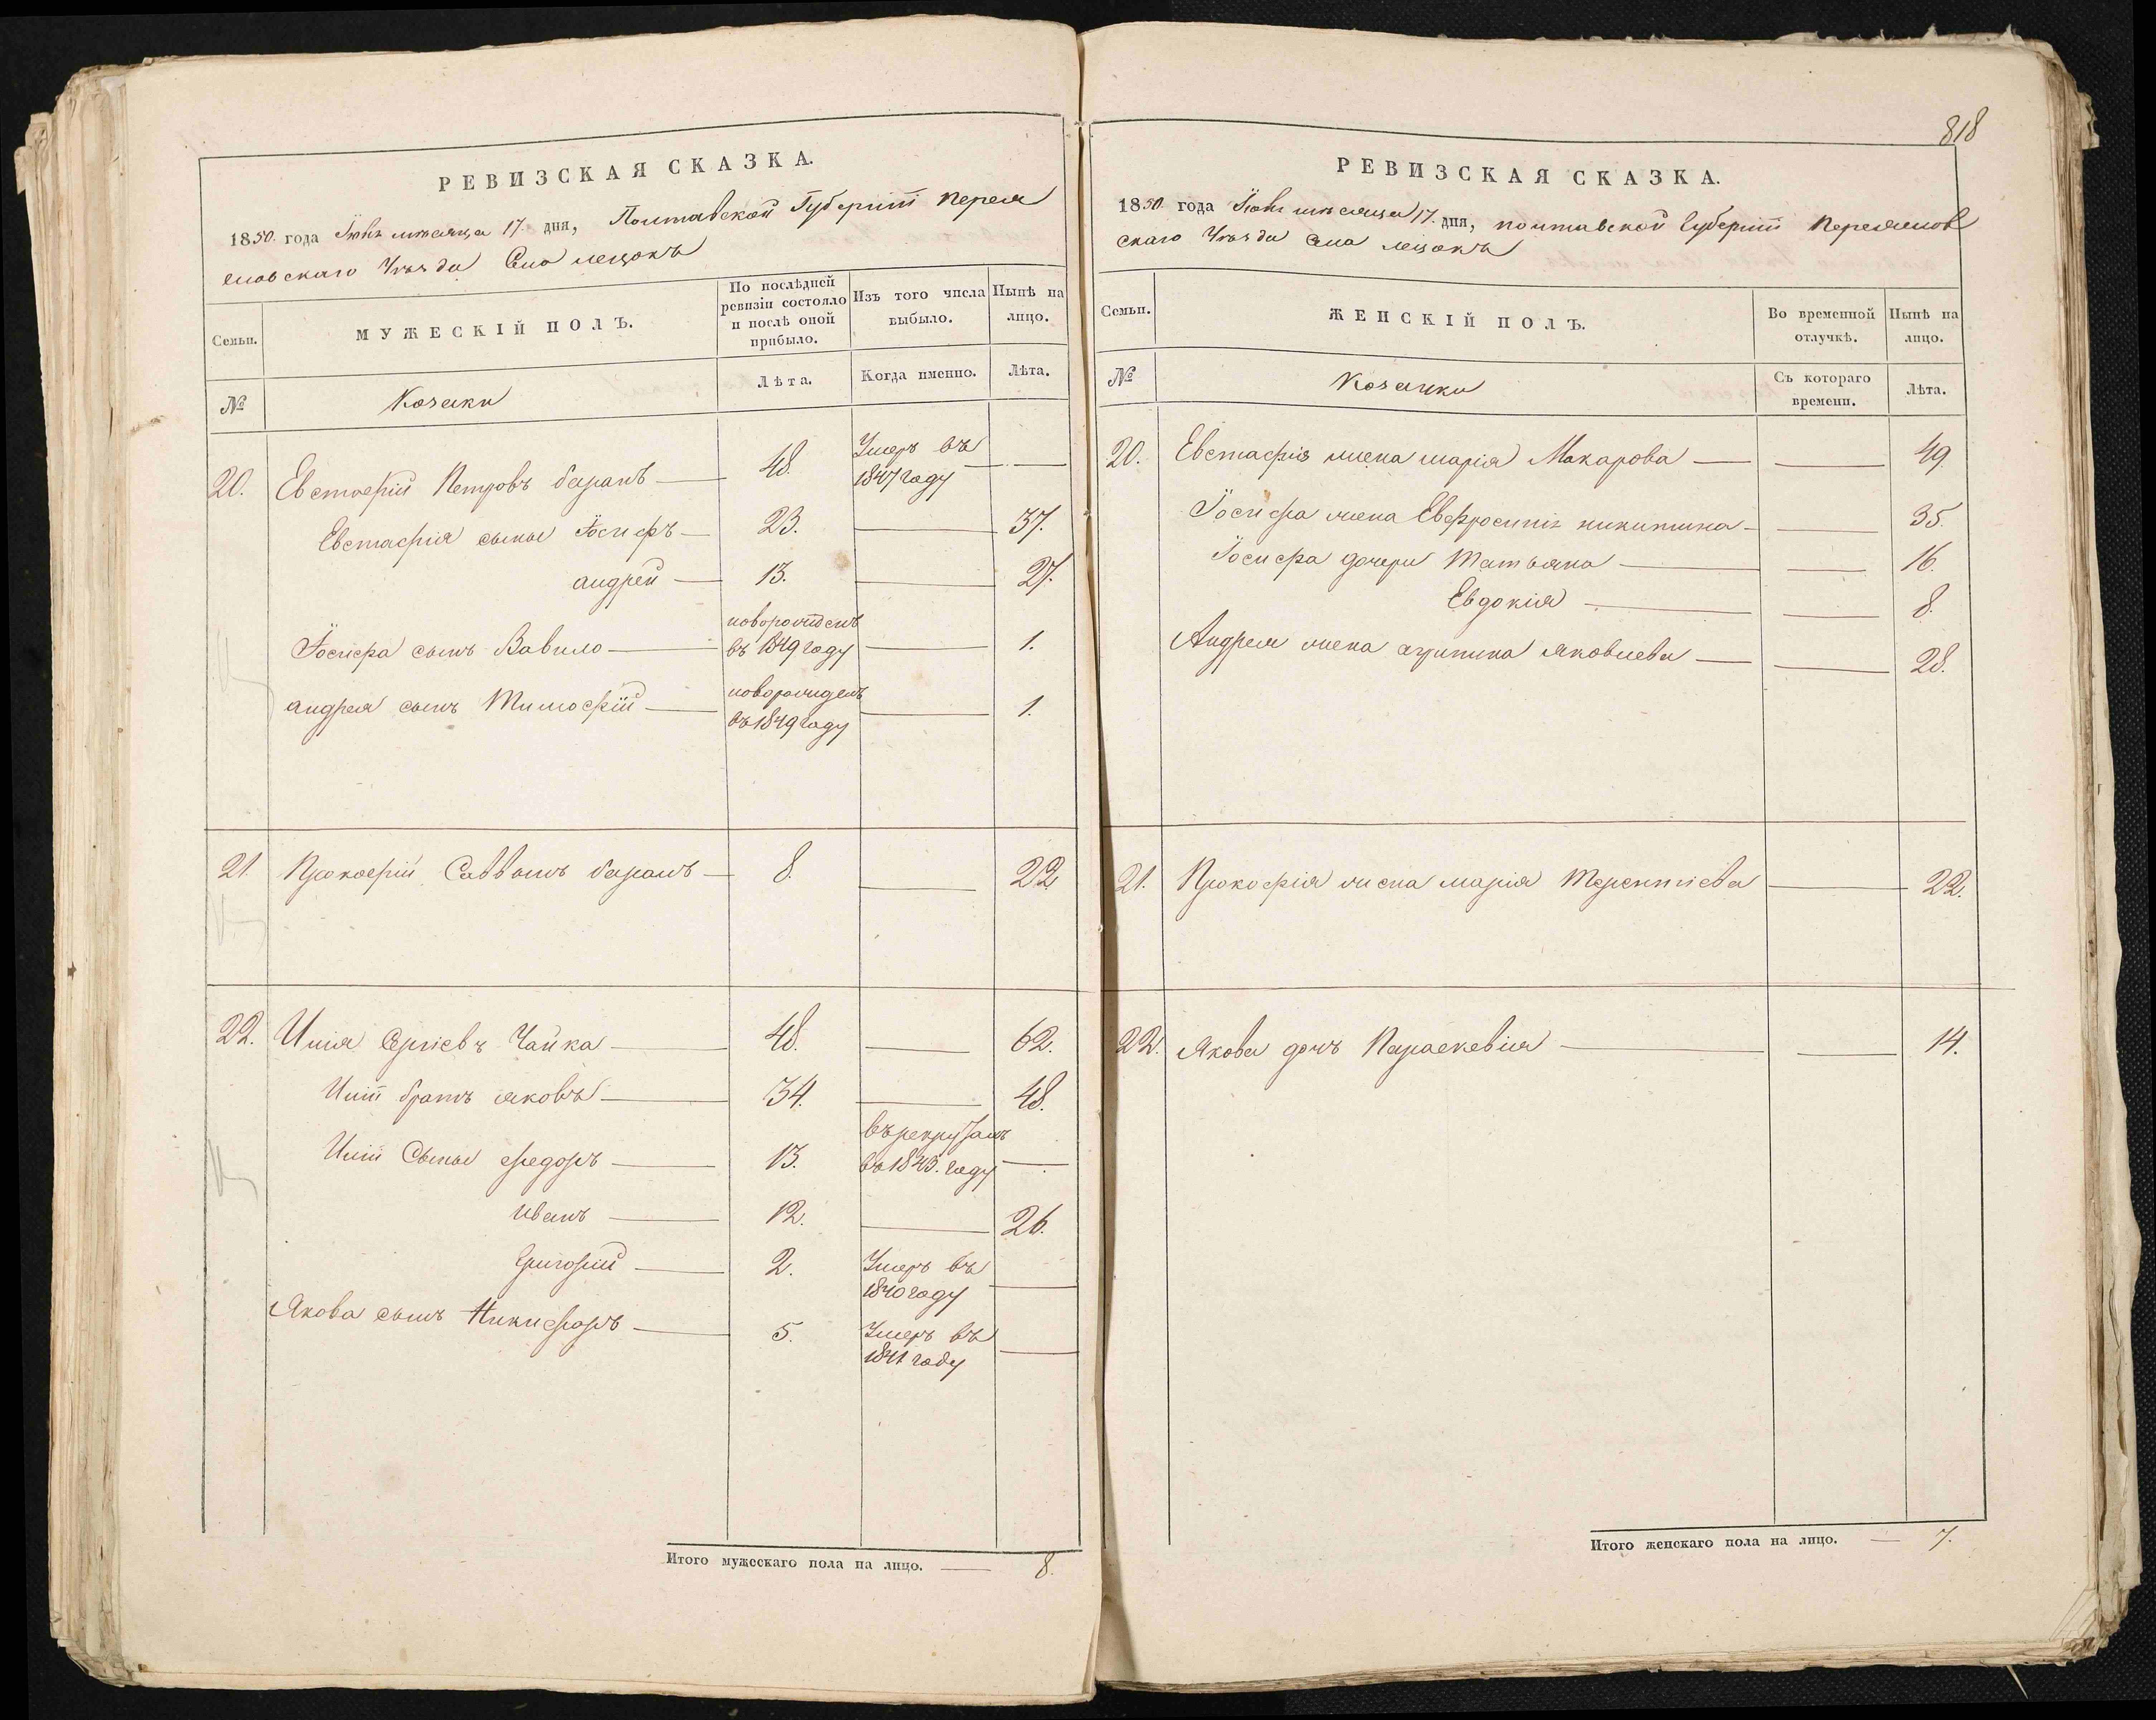 РЕВИЗСКАЯ СКАЗКА.
1850. года Іюнь мѣсяца 17. дня, Полтавской Губерніи Перея
славскаго Уѣзда Села лецокъ
Семьи.
МУЖЕСКІЙ ПОЛЪ.
По послѣдней ревизіи состояло и послѣ оной прибыло.
Изъ того числа выбыло.
Нынѣ на лицо.
№
Козаки
Лѣта.
Когда именно.
Лѣта.
20. Евстафій Петровъ баранъ — 48. Умеръ въ 1847 году —
Евстафія сыны Іосифъ — 23. — 37.
андрей — 13. — 27.
Іосифа сынъ Вавило — новорожденъ въ 1849 году — 1.
андрея сынъ Тимофій — новорожденъ въ 1849 году — 1.
21. Прокофій Саввинъ баранъ — 8. — 22
22. Илія Сергіевъ Чайка — 48. — 62.
Иліи братъ яковъ — 34. — 48.
Иліи Сыны федоръ — 13. въ рекрутахъ въ 1843. году —
иванъ — 12. — 26.
Григорій — 2. Умеръ въ 1840 году —
Якова сынъ Никифоръ — 5. Умеръ въ 1841 году —
Итого мужескаго пола на лицо. — 8.
818
РЕВИЗСКАЯ СКАЗКА.
1850. года Іюнь мѣсяца 17. дня, полтавской Губерніи Переяслов
скаго Уѣзда Села лецокъ
Семьи.
ЖЕНСКІЙ ПОЛЪ.
Во временной отлучкѣ.
Нынѣ на лицо.
№
Козачки
Съ котораго времени.
Лѣта.
20. Евстафія жена марія Макарова — — 49.
Іосифа жена Евфросинія никитина — — 35.
Іосифа дочери Татьяна — — 16.
Евдокія — — 8.
Андрея жена агрипина яковлева — — 28.
21. Прокофія жена марія Терентіева — 22.
22. Якова дочь Параскевія — — 14.
Итого женскаго пола на лицо. — 7.